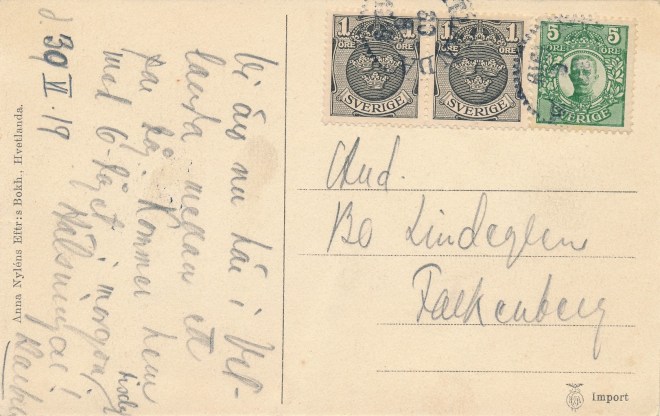 Vi äro nu här i Vet-
landa mellan ett
par tåg. Kommer hem
med 6-tåget i morgon
tisdag
Hälsningar!
d 30 VI 19
Anna Nyléns Eftr:s Bokh., Hvetlanda.
1 1
ÖRE
SVERIGE
1 1
ÖRE
SVERIGE
5 5
ÖRE
SVERIGE
Stud.
Bo Lindeglen
Falkenberg
Import